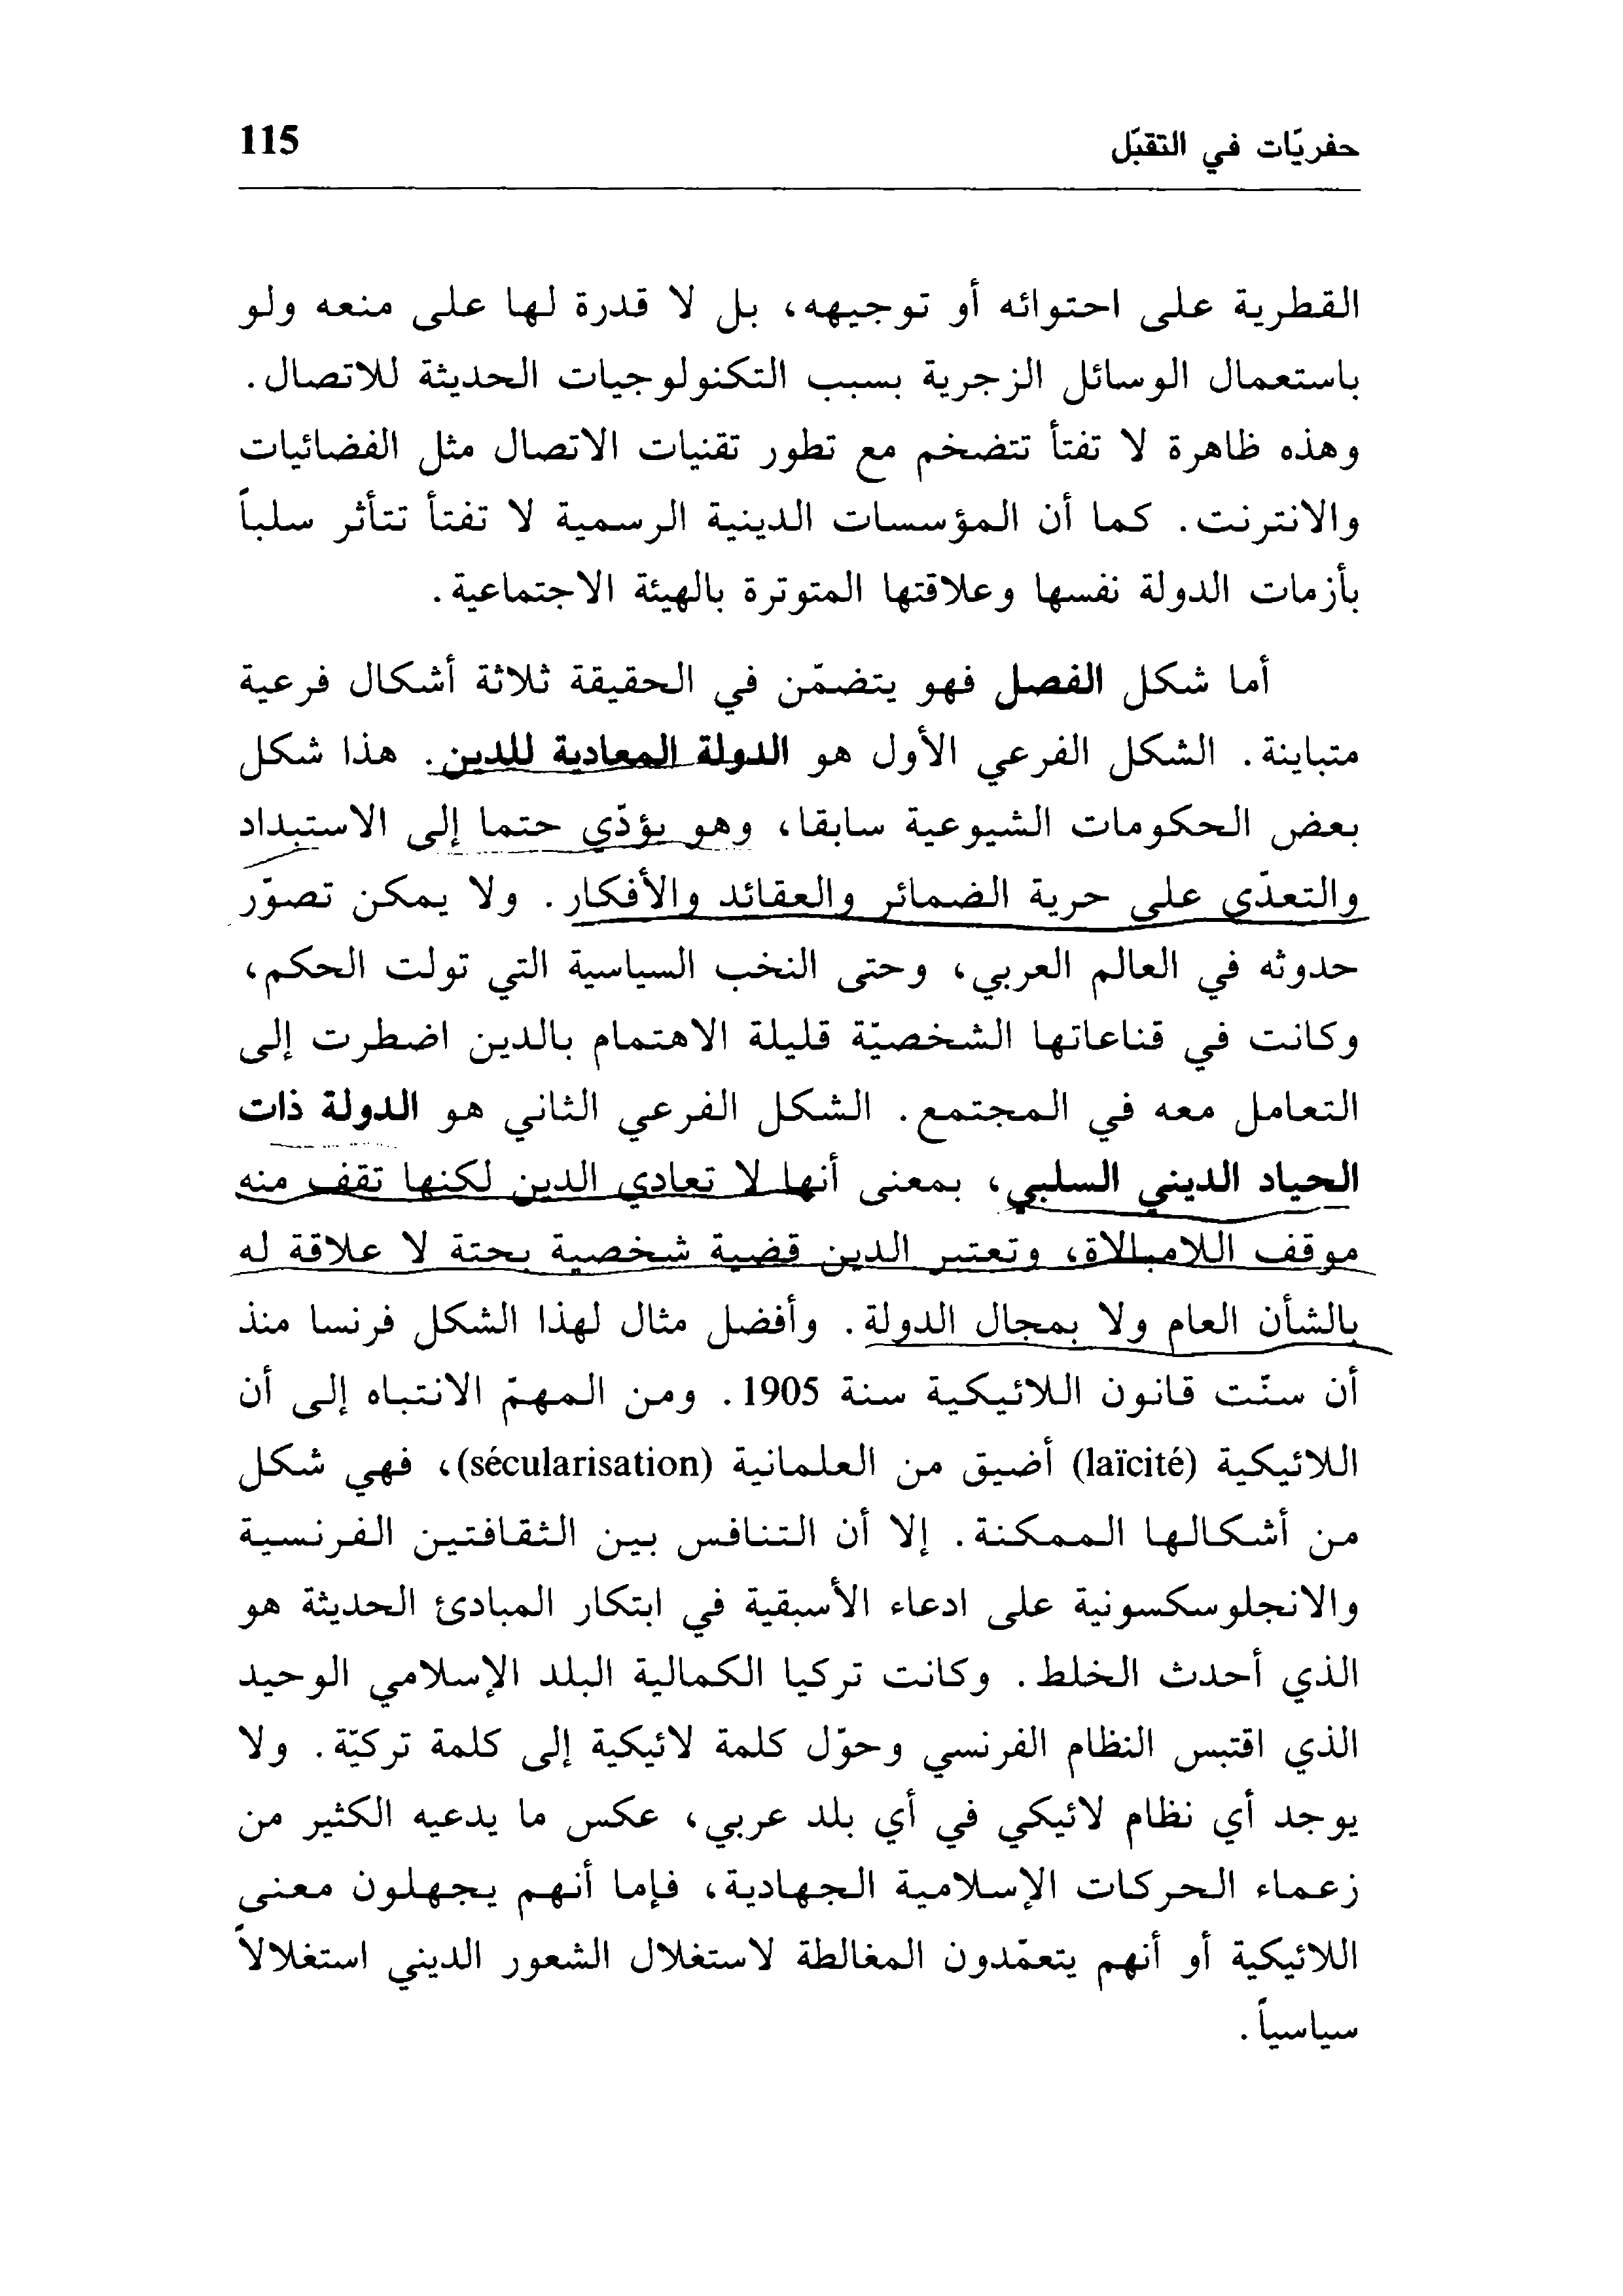 حفريّات في التقبّل 115
القطرية على احتوائه أو توجيهه، بل لا قدرة لها على منعه ولو
باستعمال الوسائل الزجرية بسبب التكنولوجيات الحديثة للاتصال.
وهذه ظاهرة لا تفتأ تتضخم مع تطور تقنيات الاتصال مثل الفضائيات
والانترنت. كما أن المؤسسات الدينية الرسمية لا تفتأ تتأثر سلباً
بأزمات الدولة نفسها وعلاقتها المتوترة بالهيئة الاجتماعية.
أما شكل الفصل فهو يتضمّن في الحقيقة ثلاثة أشكال فرعية
متباينة. الشكل الفرعي الأول هو الدولة المعادية للدين. هذا شكل
بعض الحكومات الشيوعية سابقا، وهو يؤدّي حتما إلى الاستبداد
والتعدّي على حرية الضمائر والعقائد والأفكار. ولا يمكن تصوّر
حدوثه في العالم العربي، وحتى النخب السياسية التي تولت الحكم،
وكانت في قناعاتها الشخصيّة قليلة الاهتمام بالدين اضطرت إلى
التعامل معه في المجتمع. الشكل الفرعي الثاني هو الدولة ذات
الحياد الديني السلبي، بمعنى أنها لا تعادي الدين لكنها تقف منه
موقف اللامبالاة، وتعتبر الدين قضية شخصية بحتة لا علاقة له
بالشأن العام ولا بمجال الدولة. وأفضل مثال لهذا الشكل فرنسا منذ
أن سنّت قانون اللائيكية سنة 1905. ومن المهمّ الانتباه إلى أن
اللائيكية (laïcité) أضيق من العلمانية (sécularisation)، فهي شكل
من أشكالها الممكنة. إلا أن التنافس بين الثقافتين الفرنسية
والانجلوسكسونية على ادعاء الأسبقية في ابتكار المبادئ الحديثة هو
الذي أحدث الخلط. وكانت تركيا الكمالية البلد الإسلامي الوحيد
الذي اقتبس النظام الفرنسي وحوّل كلمة لائيكية إلى كلمة تركيّة. ولا
يوجد أي نظام لائيكي في أي بلد عربي، عكس ما يدعيه الكثير من
زعماء الحركات الإسلامية الجهادية، فإما أنهم يجهلون معنى
اللائيكية أو أنهم يتعمّدون المغالطة لاستغلال الشعور الديني استغلالاً
سياسياً.